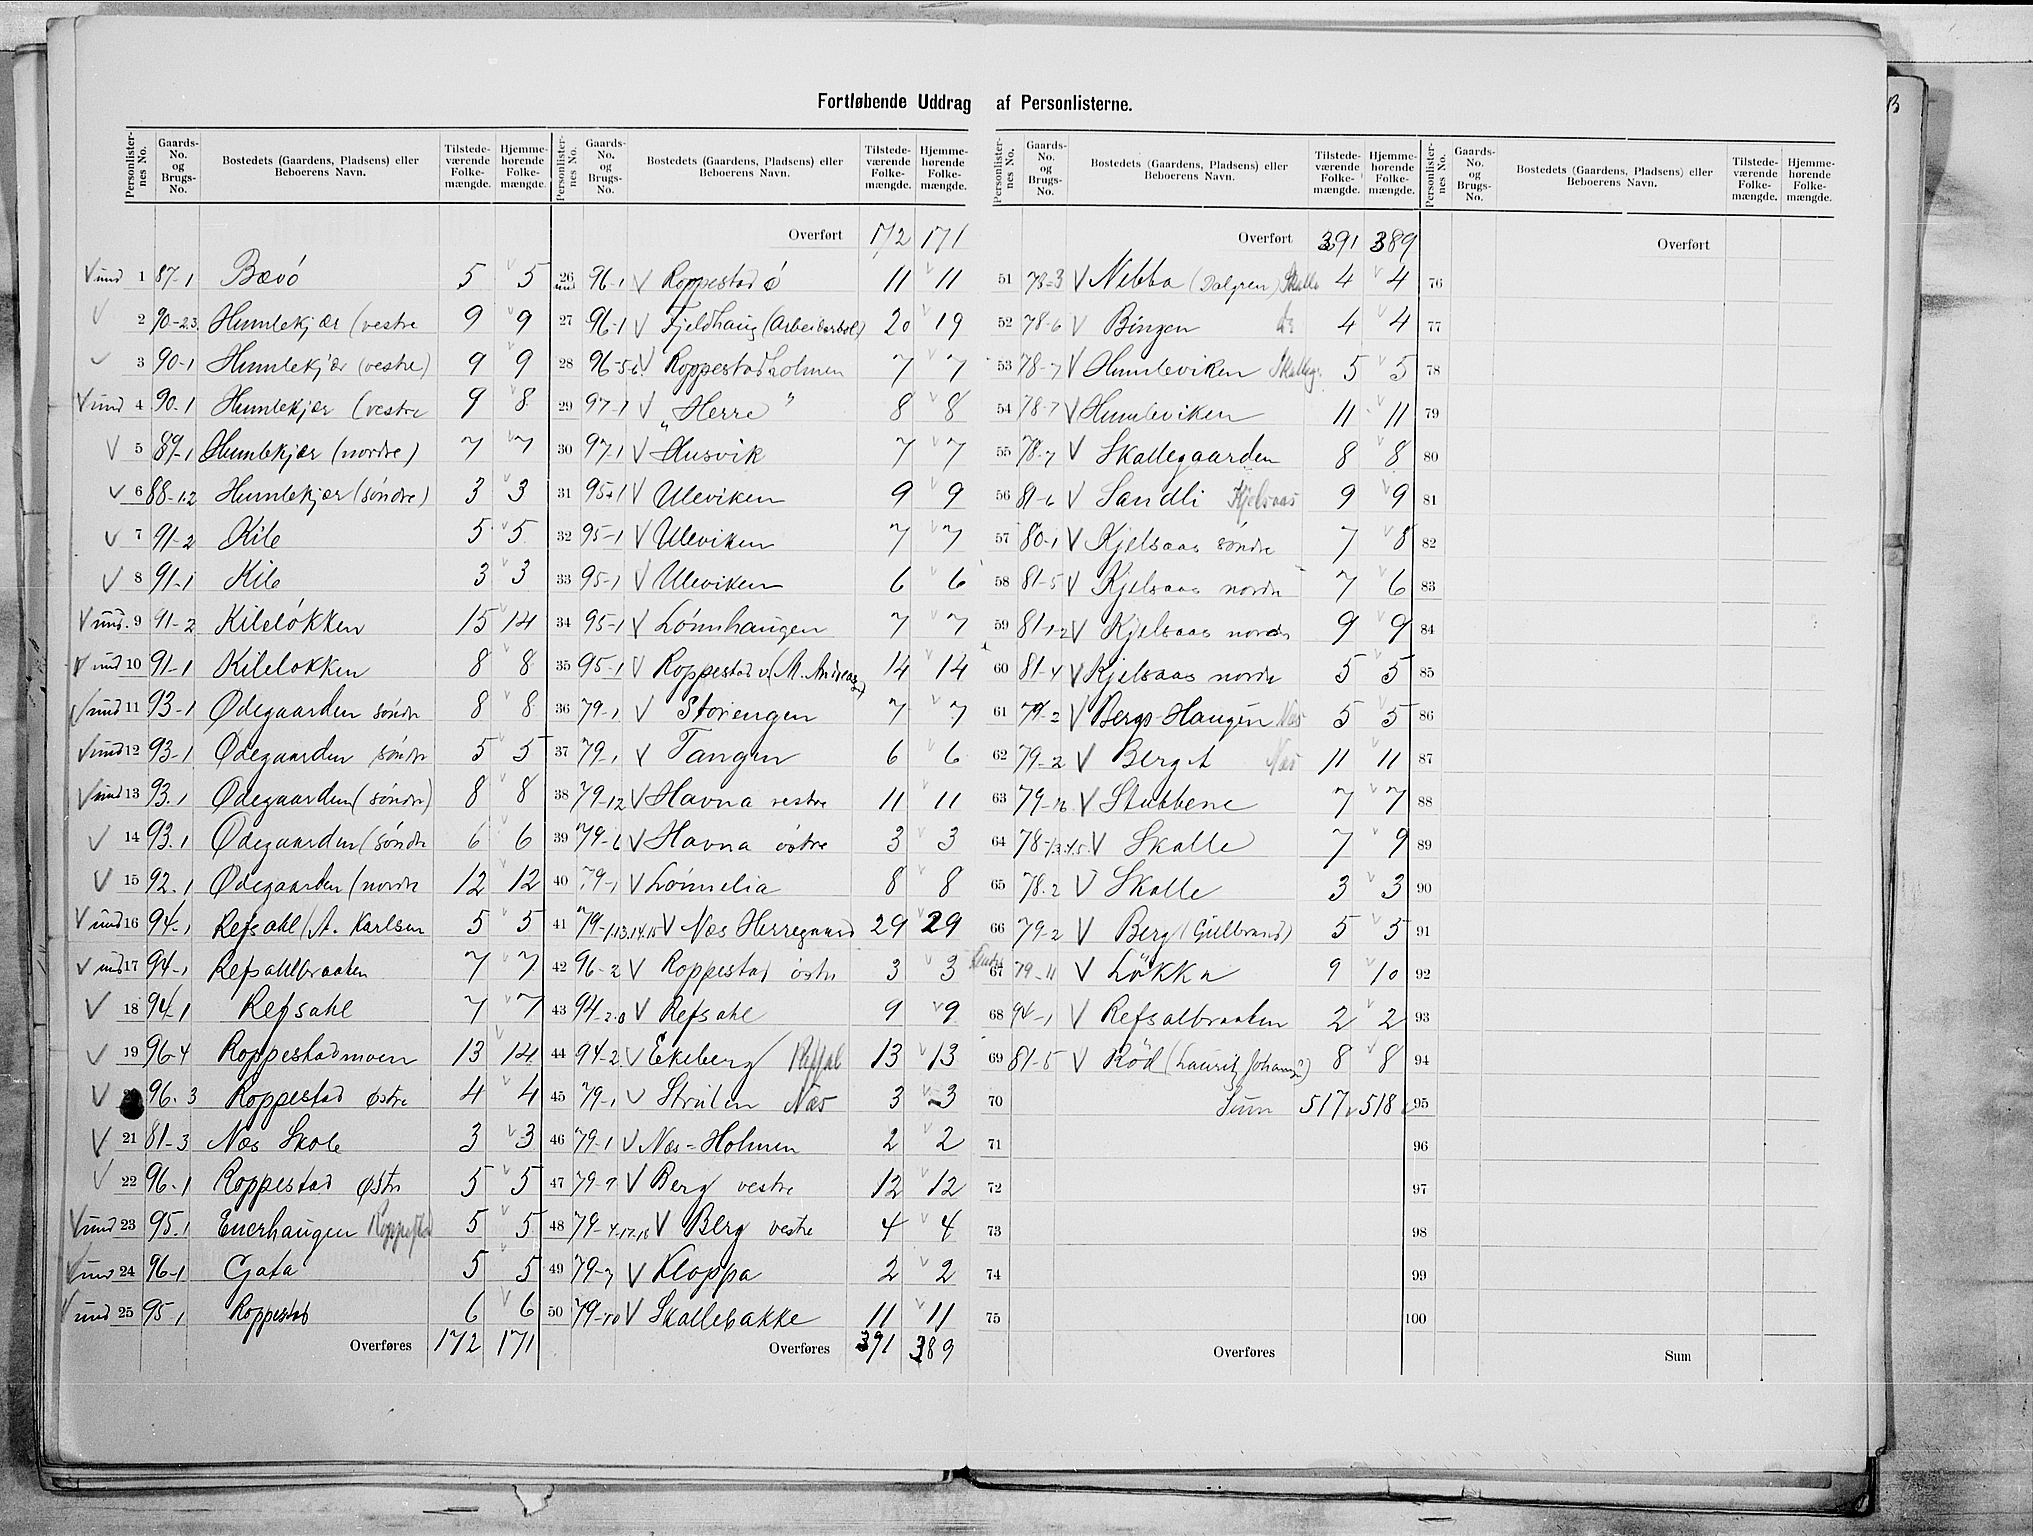 Fortløbende Uddrag af Personlisterne.
Personlisternes No. | Gaards-No. og Brugs-No. | Bostedets (Gaardens, Pladsens) eller Beboerens Navn. | Tilstedeværende Folkemængde. | Hjemmehørende Folkemængde.
V und 1 87-1 Bævö 5 5
V 2 90-2.3. Humlekjær (vestre 9 9
V 3 90-1 Humlekjær (vestre) 9 9
V und 4 90.1 Humlekjær (vestre 9 8
V 5 89-1 Humlekjær (nordre) 7 7
V 6 88-1.2 Humlekjær (søndre) 3 3
V 7 91-2 Kile 5 5
V 8 91-1 Kile 3 3
V und. 9 91-2 Kileløkken 15 14
V und 10 91-1 Kileløkken 8 8
V und 11 93-1 Ødegaarden søndr 8 8
V und 12 93-1 Ødegaarden søndr 5 5
V und 13 93.1 Ødegaarden (søndr) 8 8
V 14 93.1 Ødegaarden (søndr 6 6
V 15 92.1 Ødegaarden (nordre 12 12
V und 16 94-1 Refsahl (A. Karlsen 5 5
V und 17 94-1 Refsahlbraaten 7 7
V 18 94-1 Refsahl 7 7
V 19 96-4 Roppestadmoen 13 14
V 96.3 Roppestad østre 4 4
V 21 81-3 Næs Skole 3 3
V 22 96-1 Roppestad østr 5 5
V und 23 95.1 Enerhaugen Roppestad 5 5
V und 24 96-1 Gata 5 5
V und 25 95-1 Roppestad 6 6
Overføres 172 171
Personlisternes No. | Gaards-No. og Brugs-No. | Bostedets (Gaardens, Pladsens) eller Beboerens Navn. | Tilstedeværende Folkemængde. | Hjemmehørende Folkemængde.
Overført 172 171
26 und 96-1 V Roppestad ø 11 11
27 96-1 V Fjeldhaug (Arbeiderbol) 20 19
28 96-5-6 V Roppestadholmen 7 7
29 97-1 V „Herre" 8 8
30 97-1 V Husvik 7 7
31 95-1 V Uleviken 9 9
32 95-1 V Uleviken 7 7
33 95-1 V Uleviken 6 6
34 95-1 V Lönnhaugen 7 7
35 95-1 V Roppestad v. (M. Andreas) 14 14
36 79-1 V Storengen 7 7
37 79-1 V Tangen 6 6
38 79-12 V Havna vestre 11 11
39 79-6 V Havna østre 3 3
40 79-1 V Lönnelia 8 8
41 79-1.13.14.15 V Næs Herregaard 29 29
42 96-2 V Roppestad østr 3 3
43 94-2.0 V Refsahl 9 9
44 94-2 V Ekeberg Refsal 13 13
45 79-1 V Strulen Næs 3 3
46 79-1 V Næs-Holmen 2 2
47 79-9 V Berg vestre 12 12
48 79-4.17.18 V Berg vestre 4 4
49 79-7 V Kloppa 2 2
50 79-10 V Skallebakke 11 11
Overføres 391 389
Personlisternes No. | Gaards-No. og Brugs-No. | Bostedets (Gaardens, Pladsens) eller Beboerens Navn. | Tilstedeværende Folkemængde. | Hjemmehørende Folkemængde.
Overført 391 389
51 78-3 V Nebba (Dalgren) Skalle 4 4
52 78-6 V Bingen do 4 4
53 78-7 V Humleviken Skalleg. 5 5
54 78-7 V Humleviken 11 11
55 78-7 V Skallegaarden 8 8
56 81-6 V Sandli Kjelsaas 9 9
57 80-1 V Kjelsaas søndre 7 8
58 81-5 V Kjelsaas nordr 7 6
59 81-1-2 V Kjelsaas nordr 9 9
60 81-4 V Kjelsaas nordr 5 5
61 79-2 V Bergs-Haugen Næs 5 5
62 79-2 V Berget Næs 11 11
63 79-16 V Stubbene 7 7
64 78-1.3.4.5. V Skalle 7 9
65 78.2 V Skalle 3 3
66 79-2 V Berg (Gulbrand) 5 5
67 79-11 V Lökka 9 10
68 94-1 V Refsalbraaten 2 2
69 81-5 V Röd (Laurits Johans) 8 8
70 Sum 517 518
71
72
73
74
75
Overføres
Personlisternes No. | Gaards-No. og Brugs-No. | Bostedets (Gaardens, Pladsens) eller Beboerens Navn. | Tilstedeværende Folkemængde. | Hjemmehørende Folkemængde.
Overført
76
77
78
79
80
81
82
83
84
85
86
87
88
89
90
91
92
93
94
95
96
97
98
99
100
Sum